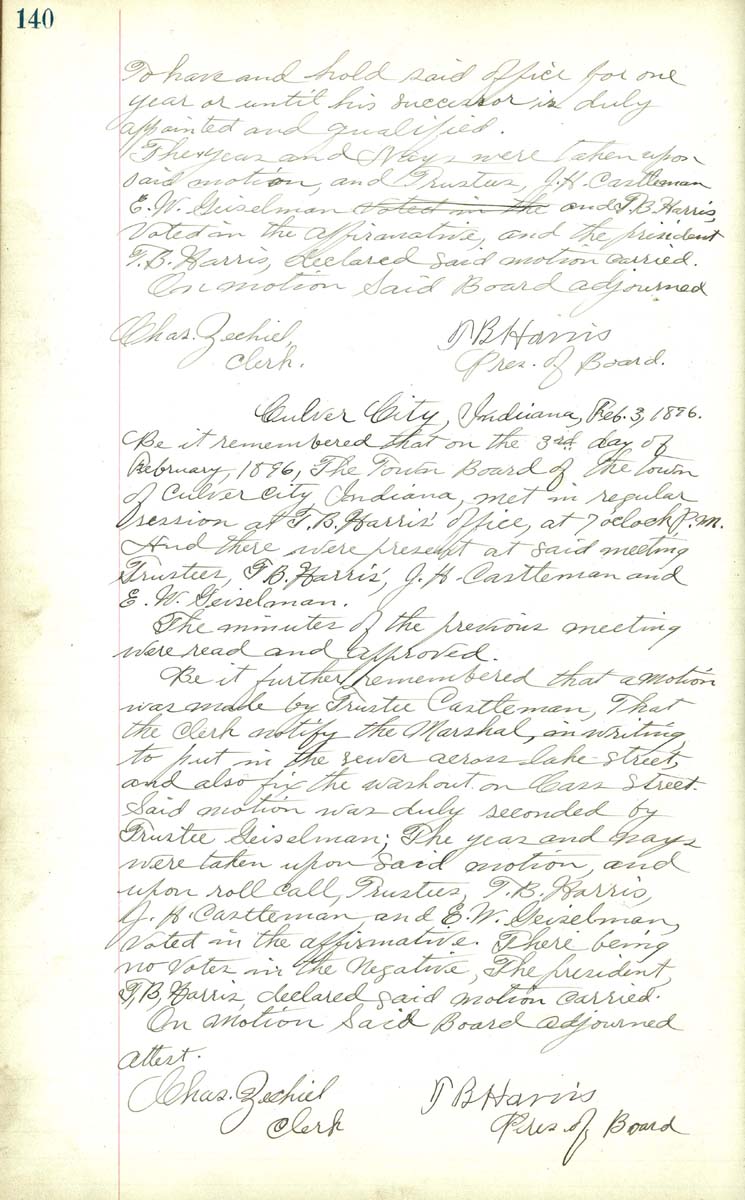 140
To have and hold said office for one
year or until his successor is duly
appointed and qualified.
The yeas and Nays were taken upon
said motion, and Trustees, J. H. Castleman
E. W. Geiselman voted in the and T. B. Harris,
Voted in the affirmative, and the president
T. B. Harris, declared said motion carried.
On motion Said Board adjourned
Chas. Zechiel, T B Harris
Clerk. Pres. of Board.
Culver City, Indiana, Feb. 3, 1896.
Be it remembered that on the 3rd day of
February, 1896, The Town Board of the town
of Culver City, Indiana, met in regular
session at T. B. Harris' office, at 7 oclock P.M.
And there were present at said meeting
Trustees, T. B. Harris, J. H. Castleman and
E. W. Geiselman.
The minutes of the previous meeting
were read and approved.
Be it further remembered that a motion
was made by Trustee Castleman, That
the Clerk notify the Marshal, in writing,
to put in the sewer across Lake Street,
and also fix the washout on Cass Street.
Said motion was duly seconded by
Trustee Geiselman; The yeas and nays
were taken upon said motion, and
upon roll call, Trustees, T. B. Harris,
J. H. Castleman and E. W. Geiselman,
Voted in the affirmative. There being
no Votes in the Negative, The president,
T. B. Harris, declared said motion carried.
On Motion Said Board adjourned
attest.
Chas. Zechiel T B Harris
Clerk Pres. of Board